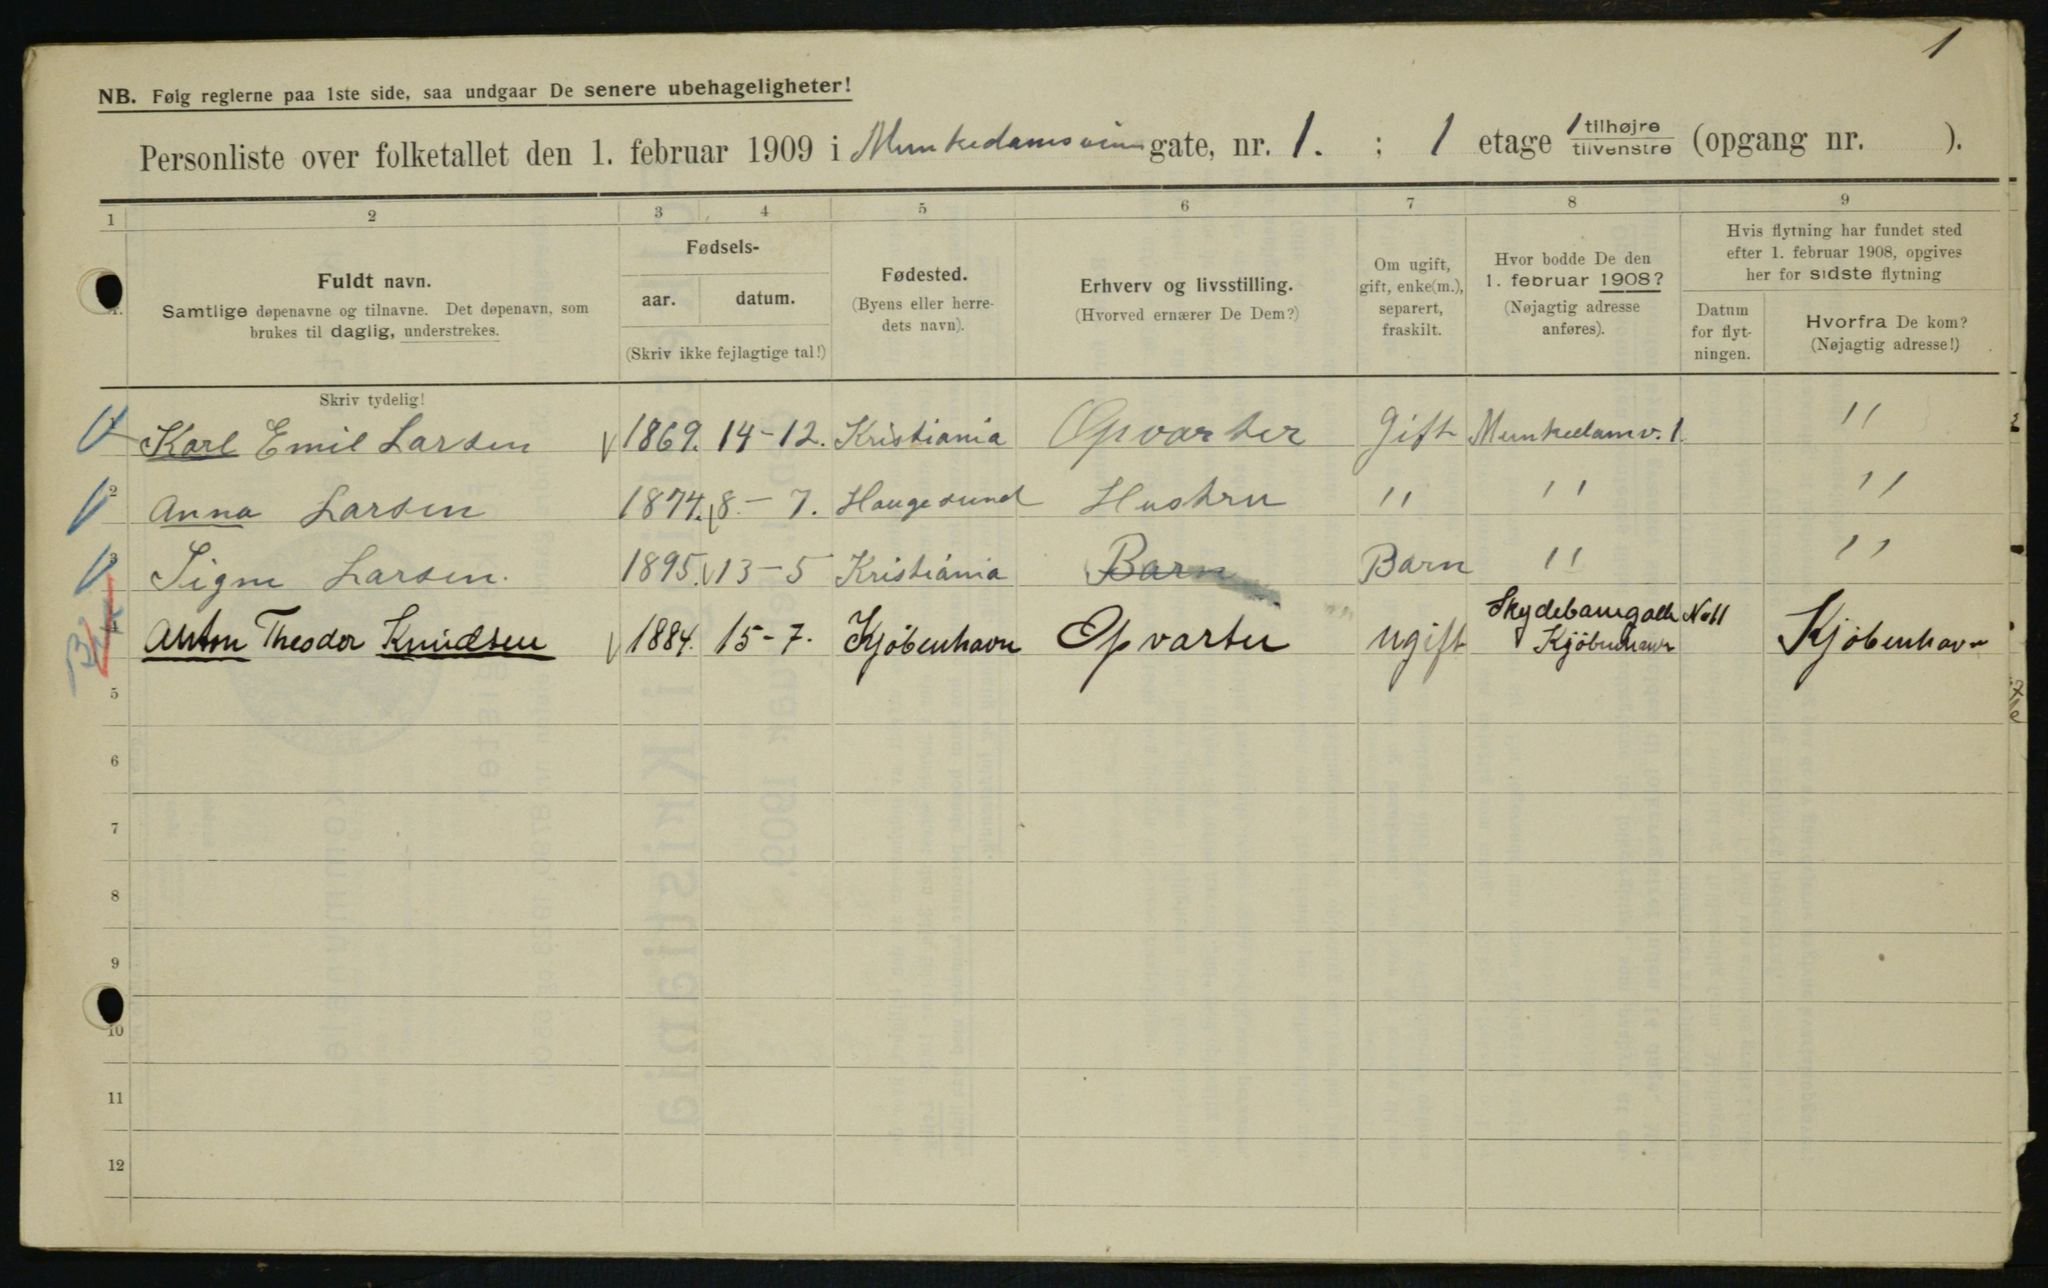 1
NB. Følg reglerne paa 1ste side, saa undgaar De senere ubehageligheter!
Personliste over folketallet den 1. februar 1909 i Munkedamsveien gate, nr. 1. ; 1 etage 1 tilhøjre tilvenstre (opgang nr. ).
1 2 3 4 5 6 7 8 9
Fuldt navn.
Samtlige døpenavne og tilnavne. Det døpenavn, som
brukes til daglig, understrekes.
Fødsels-
aar. datum.
(Skriv ikke fejlagtige tal!)
Fødested.
(Byens eller herre-
dets navn).
Erhverv og livsstilling.
(Hvorved ernærer De Dem?)
Om ugift,
gift, enke(m.),
separert,
fraskilt.
Hvor bodde De den
1. februar 1908?
(Nøjagtig adresse
anføres).
Hvis flytning har fundet sted
efter 1. februar 1908, opgives
her for sidste flytning
Datum
for flyt-
ningen.
Hvorfra De kom?
(Nøjagtig adresse!)
Skriv tydelig!
Karl Emil Larsen 1869. 14-12. Kristiania Opvarter Gift Munkedamv. 1. "
2 Anna Larsen 1874. 8.-7. Haugesund Hustru " " "
3 Signe Larsen. 1895. 13-5 Kristiania Barn Barn " "
4 Anton Theodor Knudsen 1884. 15-7. Kjöbenhavn Opvarter ugift Skydebanegade No 11 Kjöbenhavn Kjöbenhavn
5
6
7
8
9
10
11
12